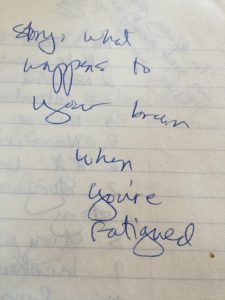 story, what
happens to
your brain
when
you're
Fatigued